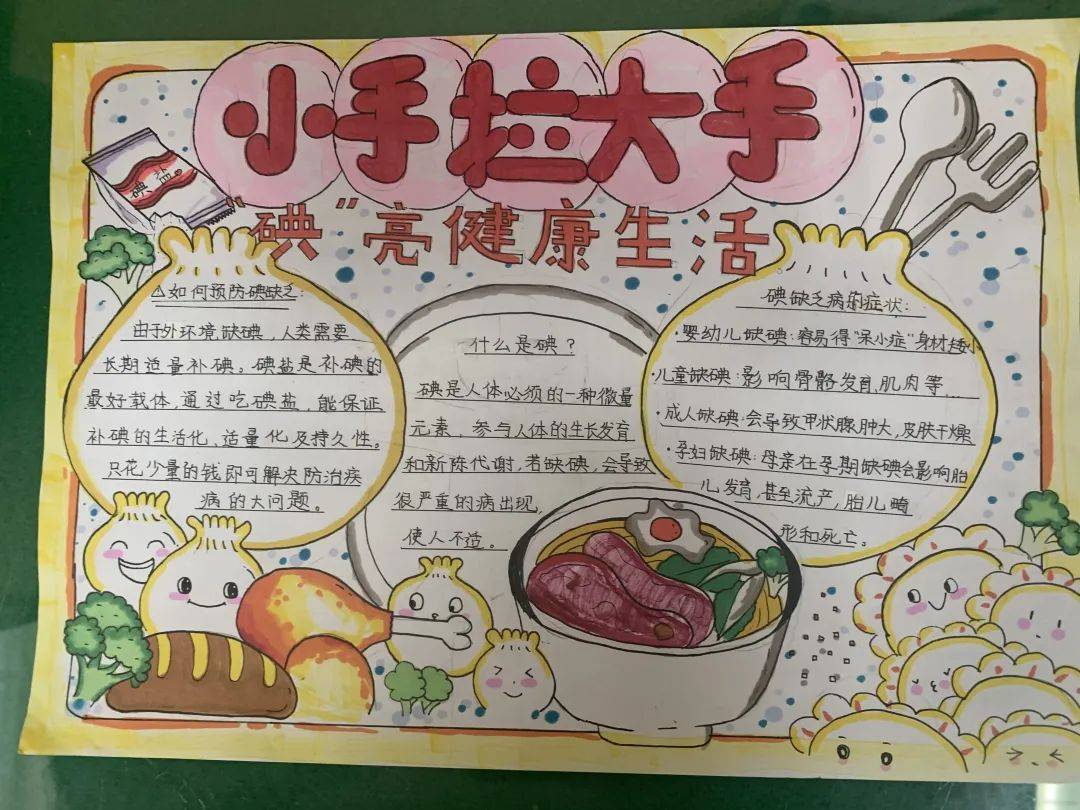 小手拦大手
"碘"亮健康生活
碘盐
如何预防碘缺乏:
由于外环境缺碘,人类需要
长期适量补碘。碘盐是补碘的
最好载体,通过吃碘盐,能保证
补碘的生活化、适量化及持久性。
只花少量的钱即可解决防治疾
病的大问题。
什么是碘?
碘是人体必须的一种微量
元素,参与人体的生长发育
和新陈代谢,若缺碘,会导致
很严重的病出现,
使人不适。
碘缺乏病的症状:
·婴幼儿缺碘:容易得"呆小症"身材矮小
·儿童缺碘:影响骨骼发育,肌肉等...
·成人缺碘:会导致甲状腺肿大,皮肤干燥
·孕妇缺碘:母亲在孕期缺碘会影响胎
儿发育,甚至流产,胎儿畸
形和死亡。